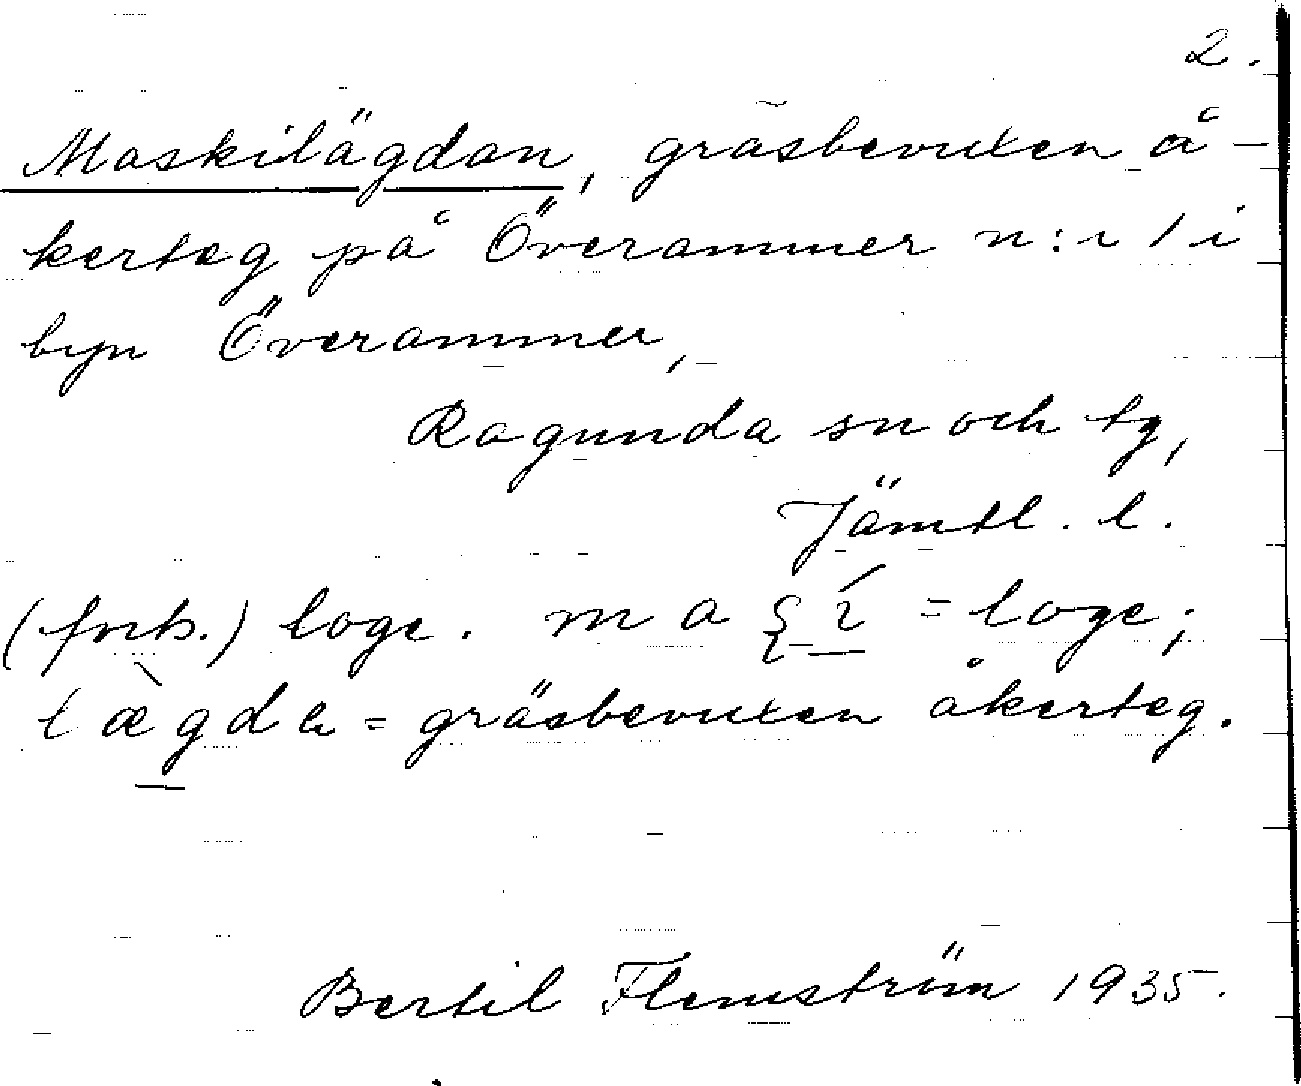 2.
Maskilägdan, gräsbevuxen å-
kerteg på Överammer n:r 1 i
byn Överammer,
Ragunda sn och tg,
Jämtl. l.
(forts.) loge. = loge;
lægda = gräsbevuxen åkerteg.
Bertil Flemström 1935.